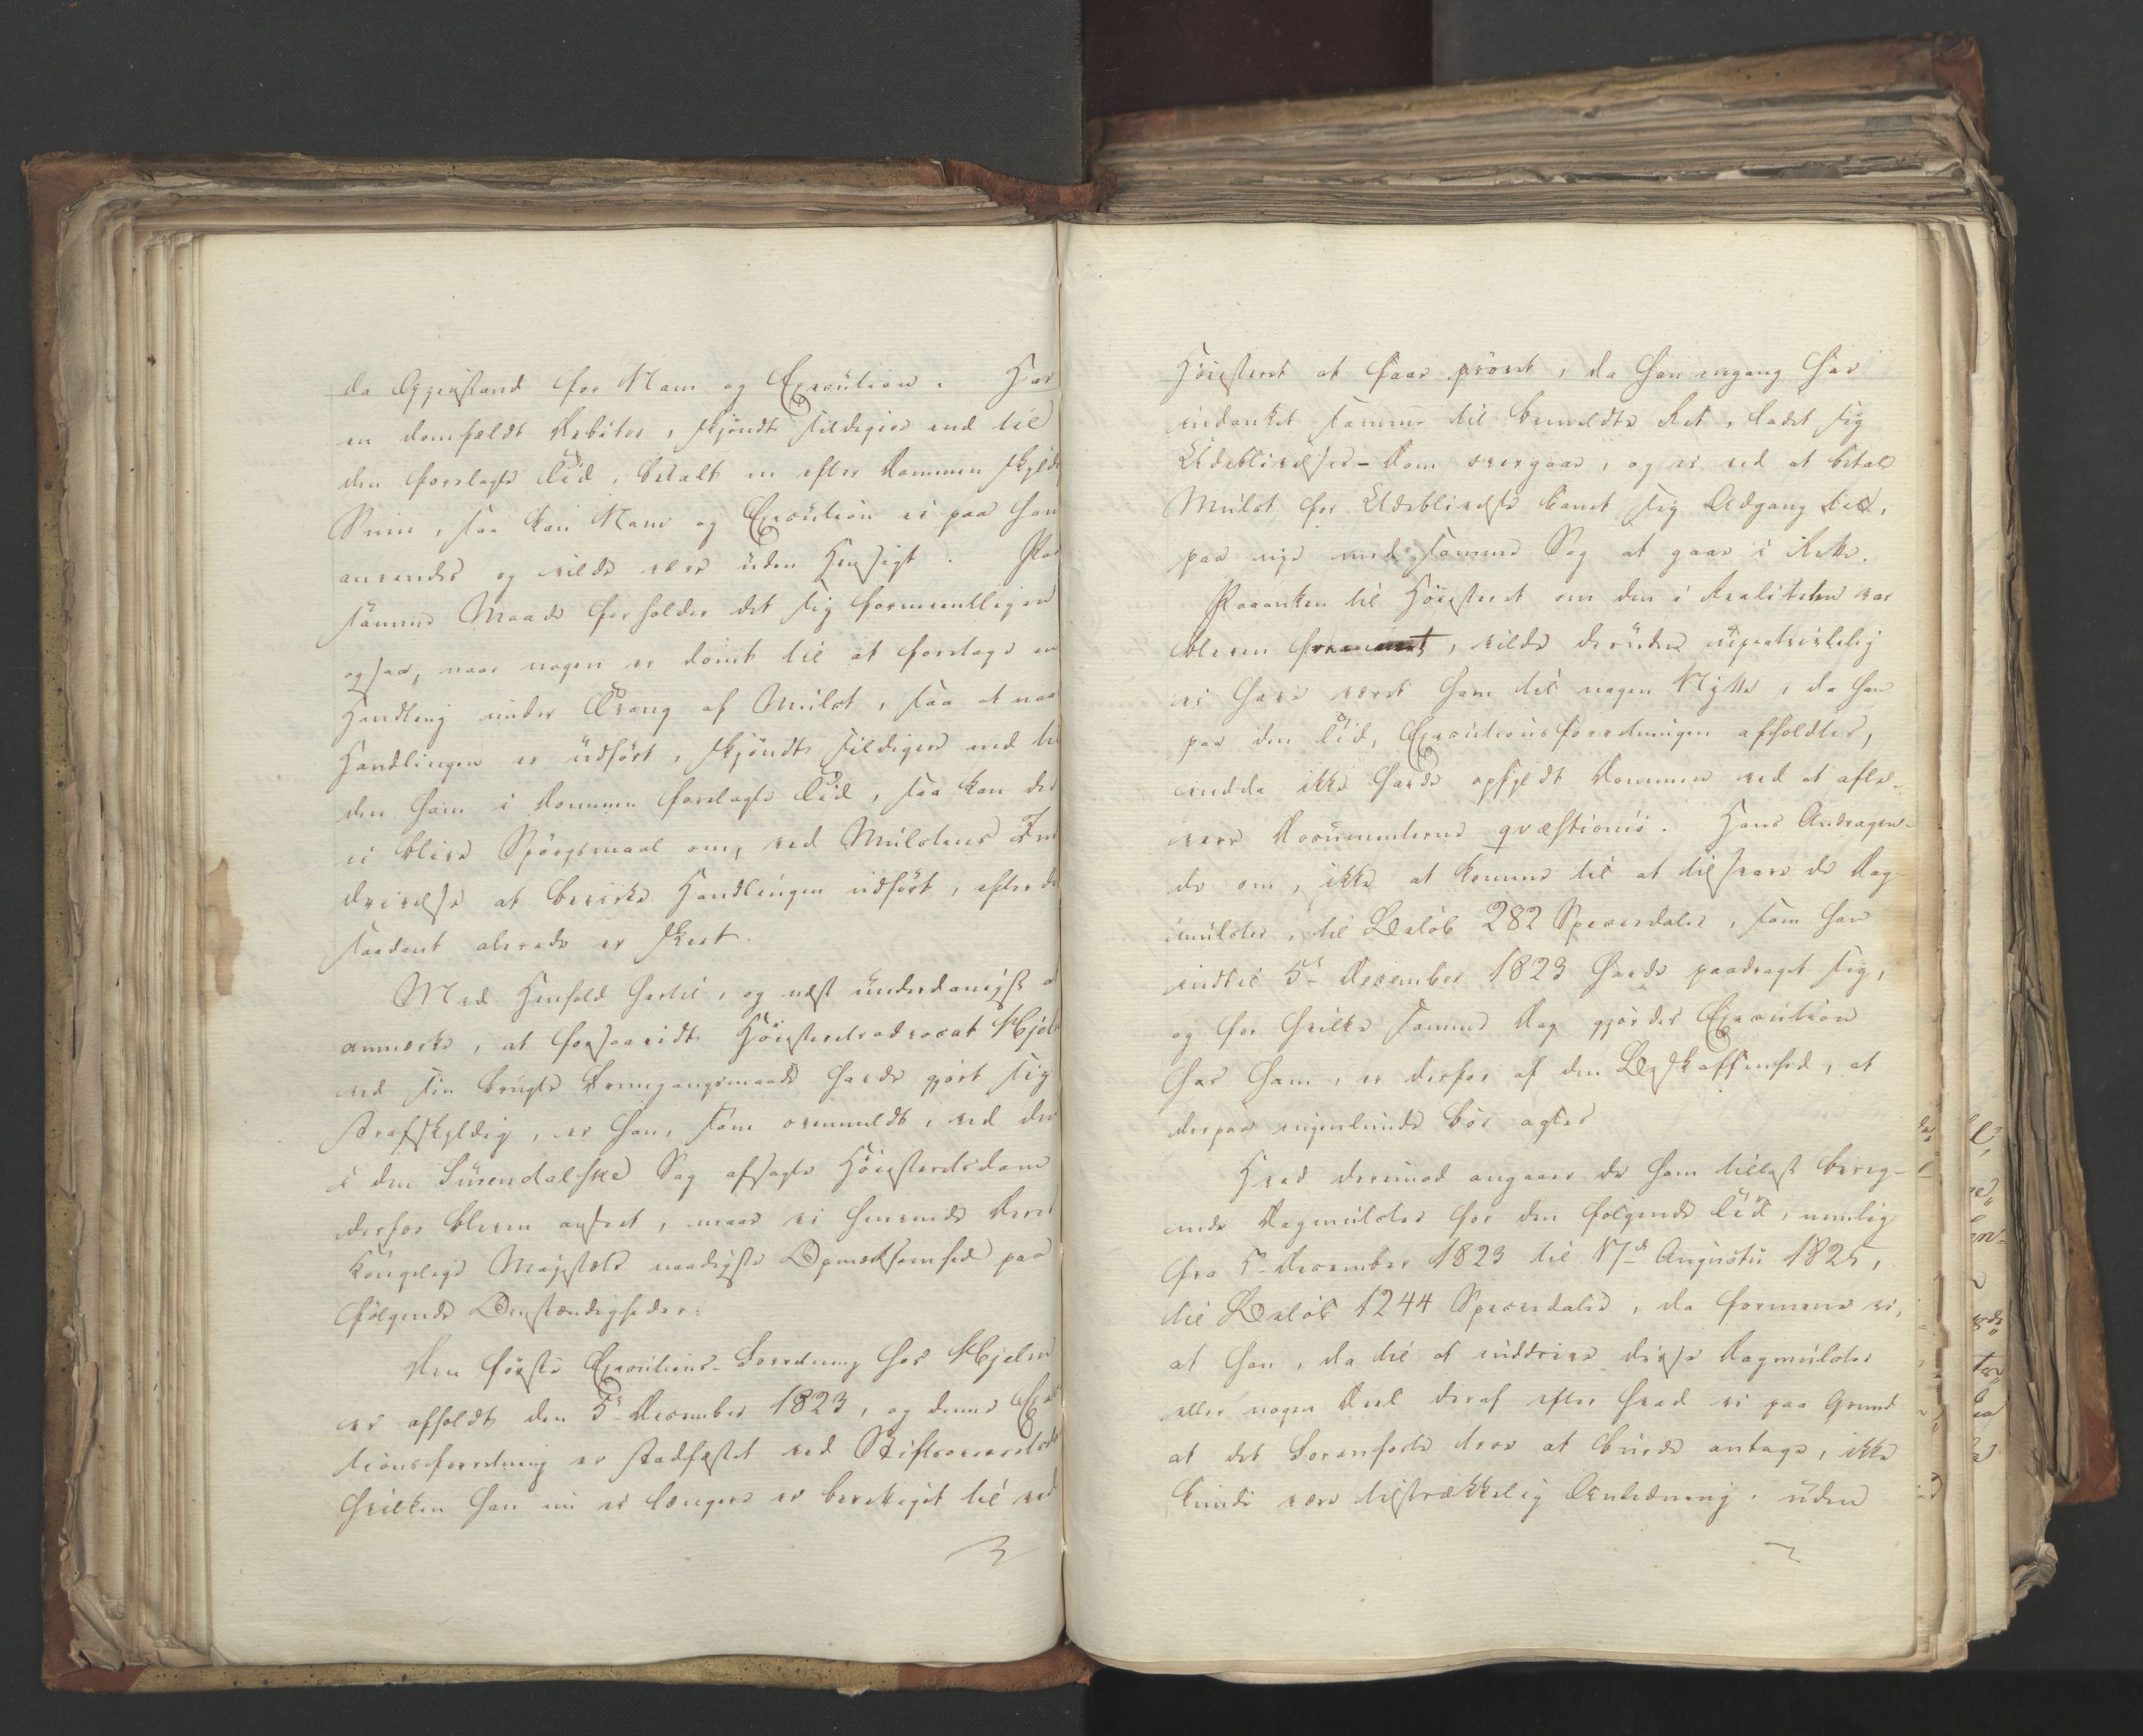 da Opreistand for Nam og Execution. Har
en domfældt Debitor, skjøndt sildigere end til
den forelagte Tid, betalt en efter Dommen skyldig
Sum, saa kan Nam og Execution ei paa ham
anvendes og vilde være uden Hensigt. Paa
samme Maade forholder det sig formeentligen
ogsaa, naar nogen er dømt til at foretage en
Handling under Tvang af Mulct, saa at naar
Handlingen er udført, skjøndt sildigere end til
den ham i Dommen forelagte Tid, saa kan der
ei blive Spørgsmaal om, ved Mulctens Ind
drivelse at bevirke Handlingen udført, efterdi
saadant allerede er skeet.
Med Henhold hertil, og næst underdanigst at
anmærke, at forsaavidt Høiesteretsadvocat Hjelm
ved sin brugte Fremgangsmaade havde gjort sig
strafskyldig, er han, som ovenmeldt, ved den
i den Surendalske Sag afsagte Høiesteretsdom
derfor bleven anseet, maae vi henvende Deres
Kongelige Majestæts naadigste Opmærksomhed paa
følgende Omstændigheder:
Den første Executions-Forretning hos Hjelm
er afholdt den 5te December 1823, og denne Exe
tionsforretning er stadfæstet ved Stiftsoverretsd
hvilken han nu ei længere er berettiget til ved
Høiesteret at faae prøvet, da han engang har
indanket samme til bemeldte Ret, ladet sig
Udeblivelses-Dom overgaae, og ei ved at betale
Mulct for Udeblivelse banet sig Adgang til,
paa nye med samme Sag at gaae i Rette.
Paaanken til Høiesteret om den i Realiteten var
bleven fremmet, vilde desuden upaatvivlelig
ei have været ham til nogen Nytte, da han
paa den Tid, Executionsforretningen afholdtes,
endda ikke havde opfyldt Dommen ved at afle-
vere Documenterne qvæstionis. Hans Andragen-
de om, ikke at komme til at tilsvare de Dag
mulcter, til Beløb 282 Speciesdaler, som han
indtil 5te December 1823 havde paadraget sig,
og for hvilke samme Dag gjordes Execution
hos ham, er derfor af den Beskaffenhed, at
derpaa ingenlunde bør agtes
Hvad derimod angaaer de ham tillagt bereg-
nede Dagmulcter for den følgende Tid, nemlig
fra 5te December 1823 til 17de Augustii 1825,
til Beløb 1244 Speciesdaler, da formene vi,
at han, da til at inddrive disse Dagmulcter
eller nogen Deel deraf efter hvad vi paa Grund
at det Foranførte troe at burde antage, ikke
kunde være tilstrækkelig Anledning, uden